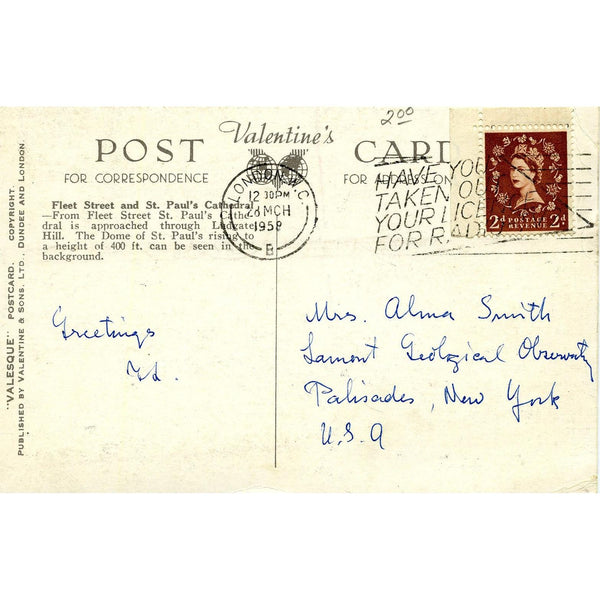 200
Valentine's
POST CARD
FOR CORRESPONDENCE
FOR ADDRESS ON
LONDON W.C.
12 30PM
MCH
1958
B
HAVE YOU
TAKEN OU
YOUR LICE
FOR RADI
2d POSTAGE 2d
REVENUE
Fleet Street and St. Paul's Cathedral
—From Fleet Street St. Paul's Cathe-
dral is approached through Ludgate
Hill. The Dome of St. Paul's rising to
a height of 400 ft. can be seen in the
background.
"VALESQUE" POSTCARD. COPYRIGHT.
PUBLISHED BY VALENTINE & SONS. LTD., DUNDEE AND LONDON.
Greetings
Mrs. Alma Smith
Lamont Geological Observatory
Palisades, New York
U.S.A